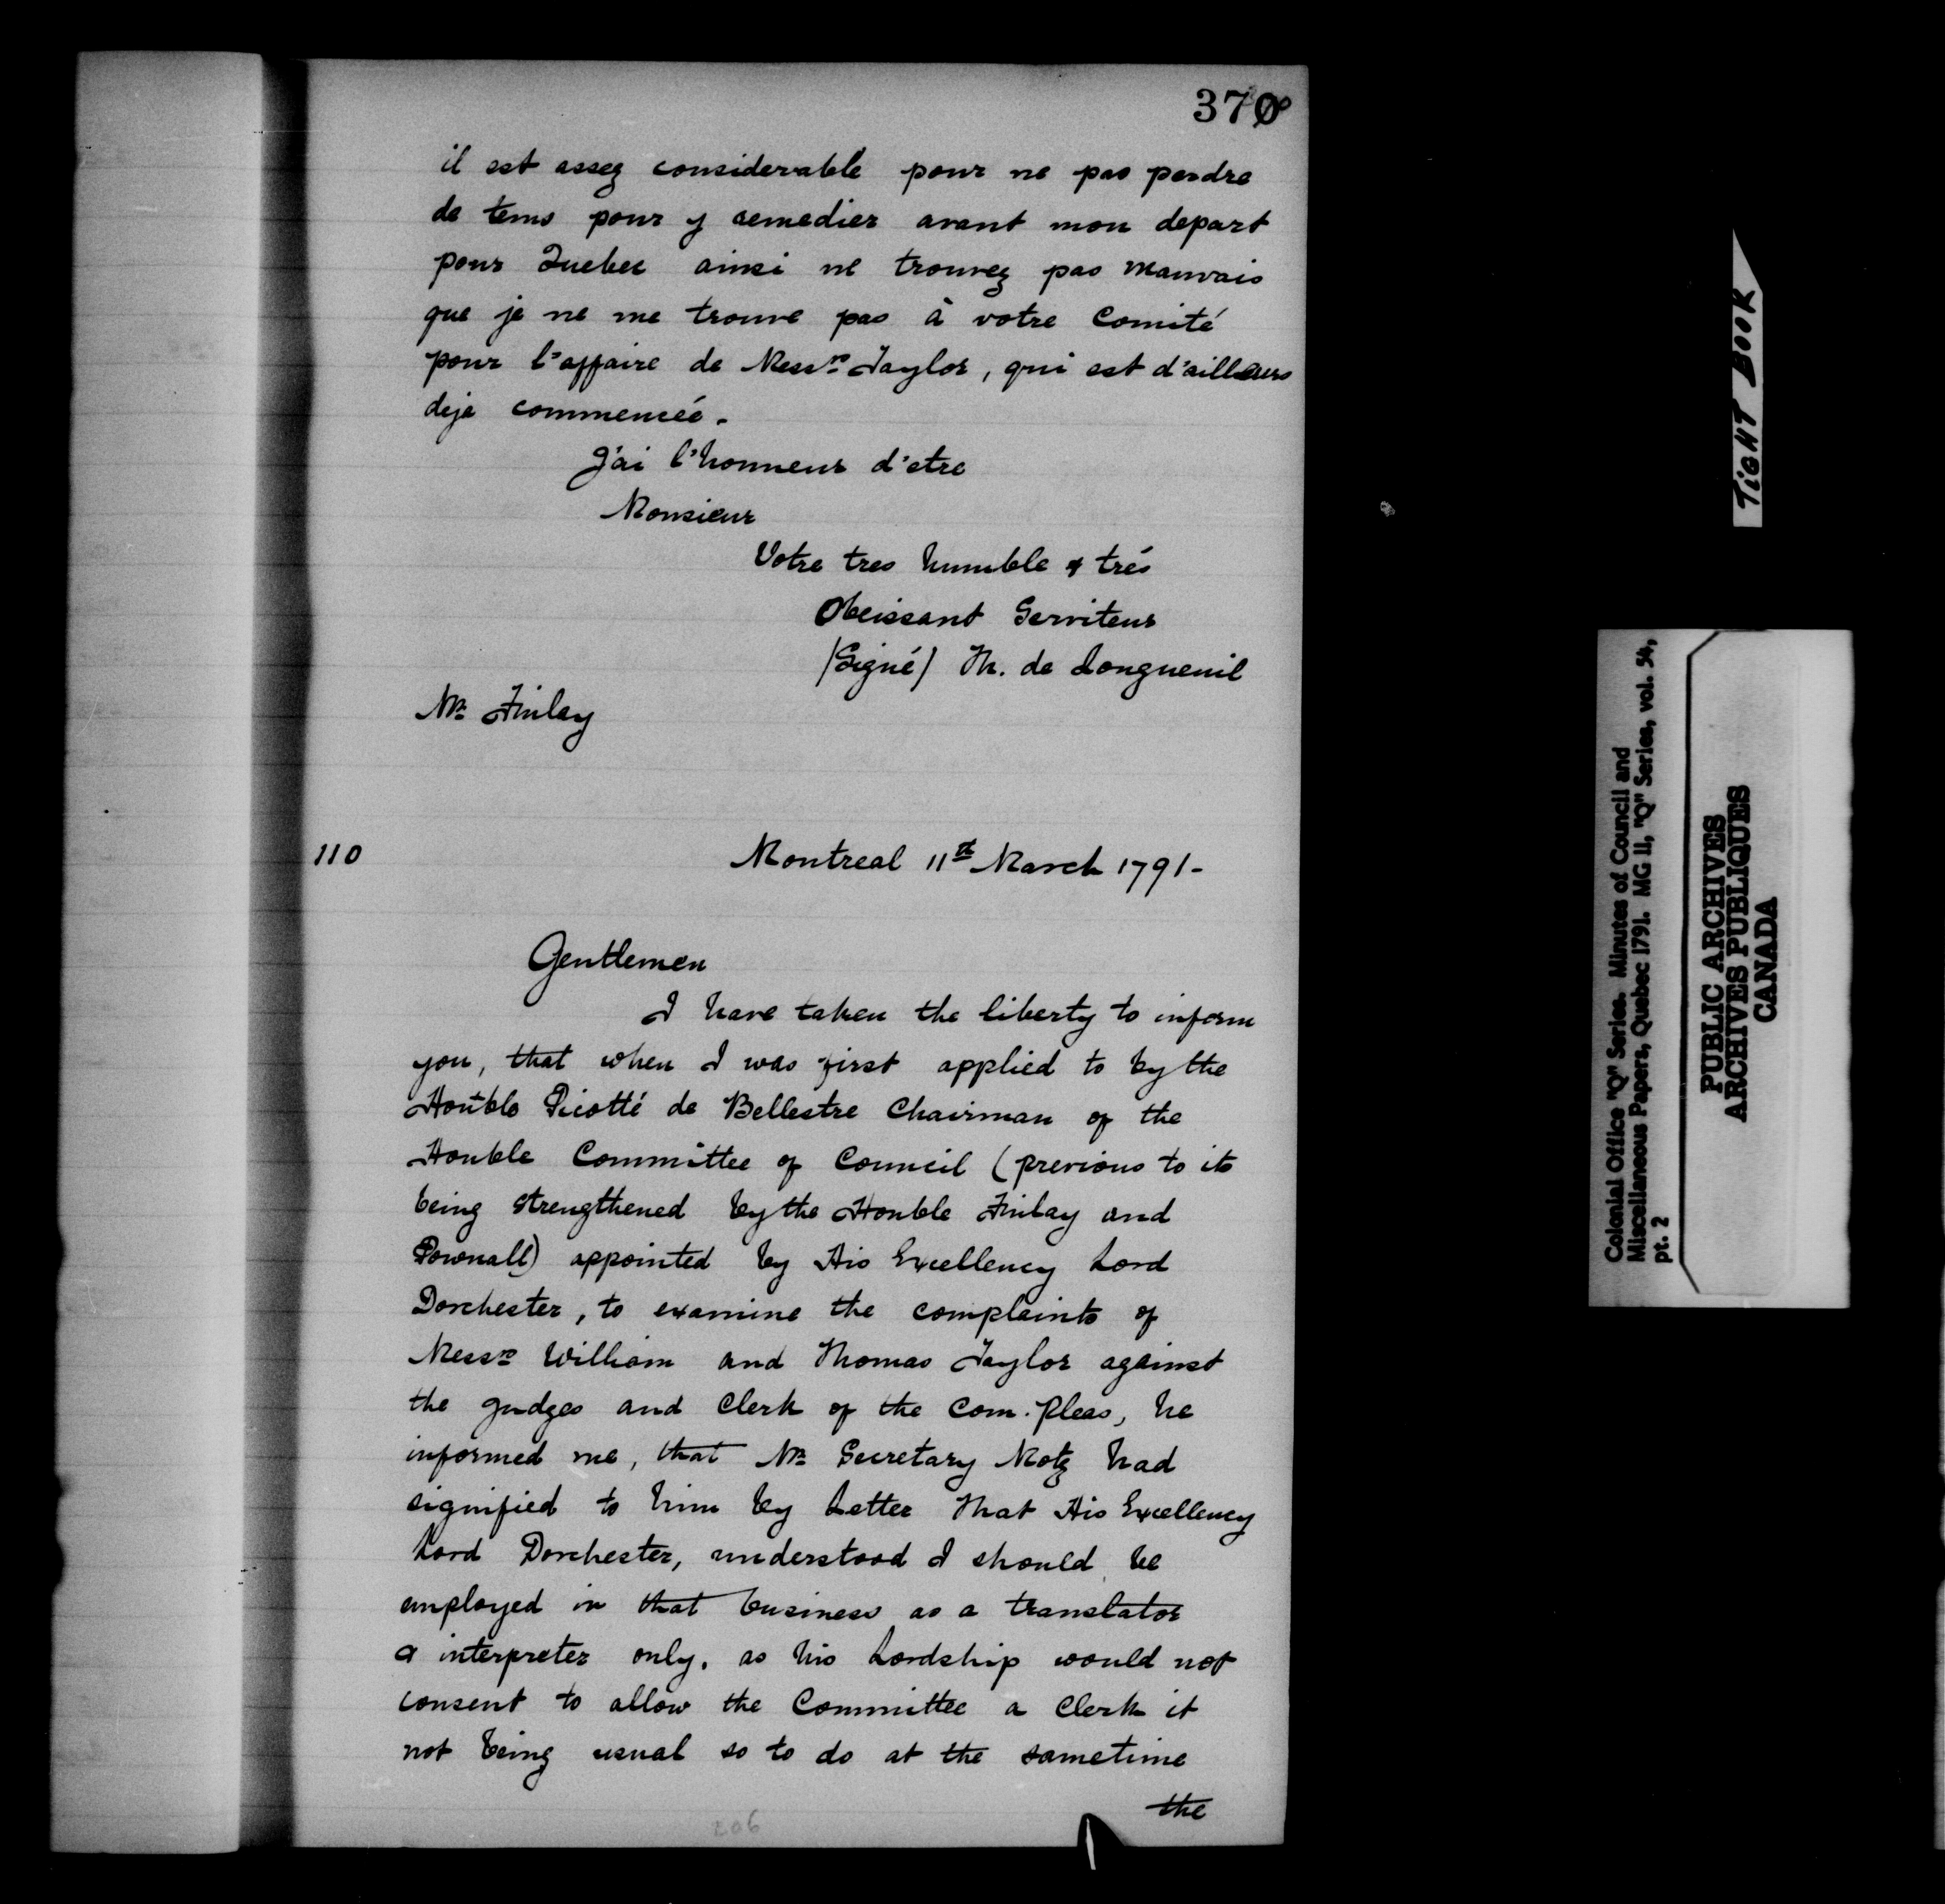 370
il est assez considerable pour ne pas perdre
de tems pour y remedier avant mon depart
pour Quebec ainsi ne trouvez pas mauvais
que je ne me trouve pas à votre Comité
pour l'affaire de Messrs Taylor, qui est d'ailleurs
deja commencée.
J'ai l'honneur d'etre
Monsieur
Votre tres humble & trés
Obeissant Serviteur
/Signé/ Th. de Longueuil
Mr Finlay
110
Montreal 11th March 1791-
Gentlemen
I have taken the liberty to inform
you, that when I was first applied to by the
Honble Picotté de Bellestre Chairman of the
Honble Committee of Council (previous to its
being strengthened by the Honble Finlay and
Pownall) appointed by His Excellency Lord
Dorchester, to examine the complaints of
Messrs William and Thomas Taylor against
the Judges and Clerk of the Com. Pleas, he
informed me, that Mr Secretary Motz had
signified to him by Letter That His Excellency
Lord Dorchester, understood I should be
employed in that business as a translator
& interpreter only, as his Lordship would not
consent to allow the Committee a Clerk it
not being usual so to do at the sametime
the
206
TIGHT BOOK
Colonial Office "Q" Series. Minutes of Council and
Miscellaneous Papers, Quebec 1791. MG 11, "Q" Series, vol. 54,
pt. 2
PUBLIC ARCHIVES
ARCHIVES PUBLIQUES
CANADA